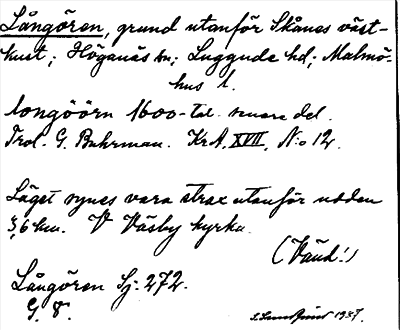 Långören, grund utanför Skånes väst-
kust; Höganäs sn; Luggude hd; Malmö-
hus l.
longöörn 1600-tal. senare del.
Trol. G. Buhrman. KrA, XVII, N:o 12.
Läget synes vara strax utanför udden
3,6 km. V Väsby kyrka.
(Vänd!)
Långören Sj. 272.
G. 8.
1937.